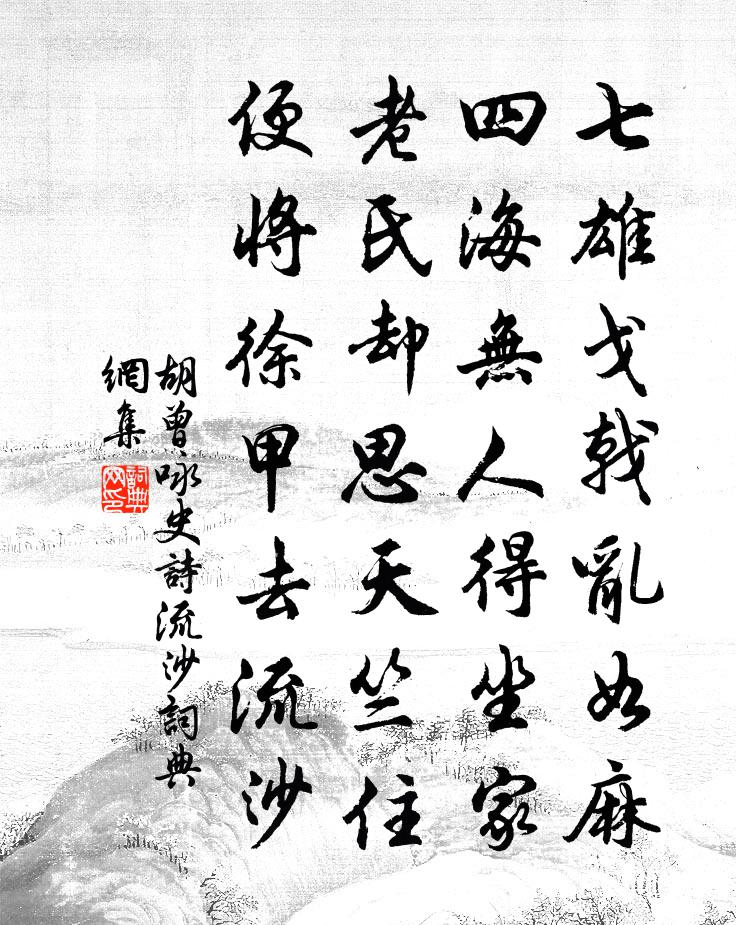 七雄戈戟亂如麻
四海無人得坐家
老氏却思天竺住
便將徐甲去流沙
胡曾咏史詩流沙詞典
網集
詞典
网印